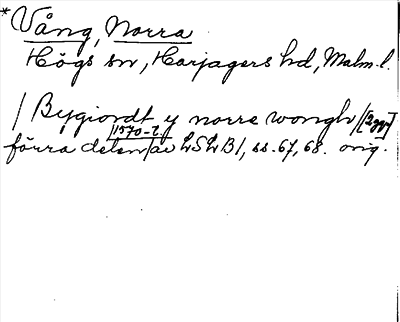 *Vång, Norra
Högs sn, Harjagers hd, Malm. l.
/ Bygiordt y norre wongh /[2 ggr]
[1570-t.]
förra delen/av LSLB1, ss. 67, 68. orig.